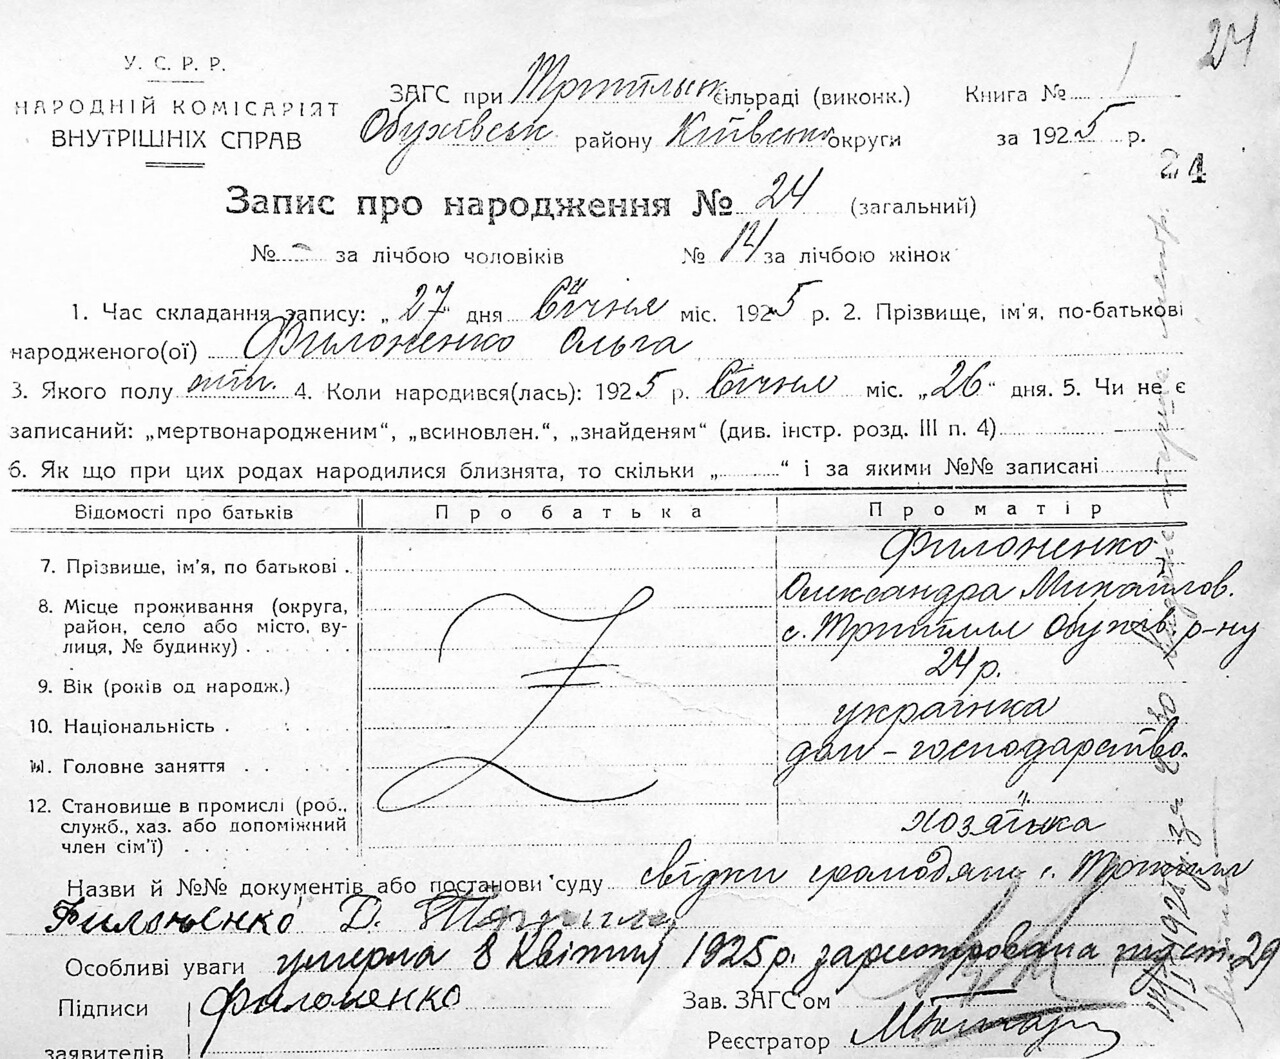 24
У. С. Р. Р.
НАРОДНІЙ КОМІСАРІЯТ
ВНУТРІШНІХ СПРАВ
ЗАГС при Трипільск сільраді (виконк.) Книга № 1
Обухівськ району Київсько округи за 1925 р.
24
Запис про народження № 24 (загальний)
№ – за лічбою чоловіків № 14 за лічбою жінок
1. Час складання запису: „27" дня Січня міс. 1925 р. 2. Прізвище, ім'я, по-батькові
народженого(ої) Филоненко Ольга
3. Якого полу 4. Коли народився(лась): 1925 р. Січня міс. „26" дня. 5. Чи не є
записаний: „мертвонародженим", „всиновлен.", „знайденям" (див. інстр. розд. III п. 4)
6. Як що при цих родах народилися близнята, то скільки „ " і за якими №№ записані
Відомості про батьків Про батька Про матір
7. Прізвище, ім'я, по батькові . Филоненко
Олександра Михайлов.
8. Місце проживання (округа,
район, село або місто, ву-
лиця, № будинку) с. Трипілля Обухів. р-ну
9. Вік (років од народж.) 24 р.
10. Національність українка
11. Головне заняття дом – господарство.
12. Становище в промислі (роб.,
служб., хаз. або допоміжний
член сім'ї) хозяйка
Назви й №№ документів або постанови суду свідки громадяни с. Трипілля
Филоненко Д.
Особливі уваги умерла 8 Квітня 1925 р. зареєстрована 29
Підписи Филоненко Зав. ЗАГС'ом
заявителів Реєстратор